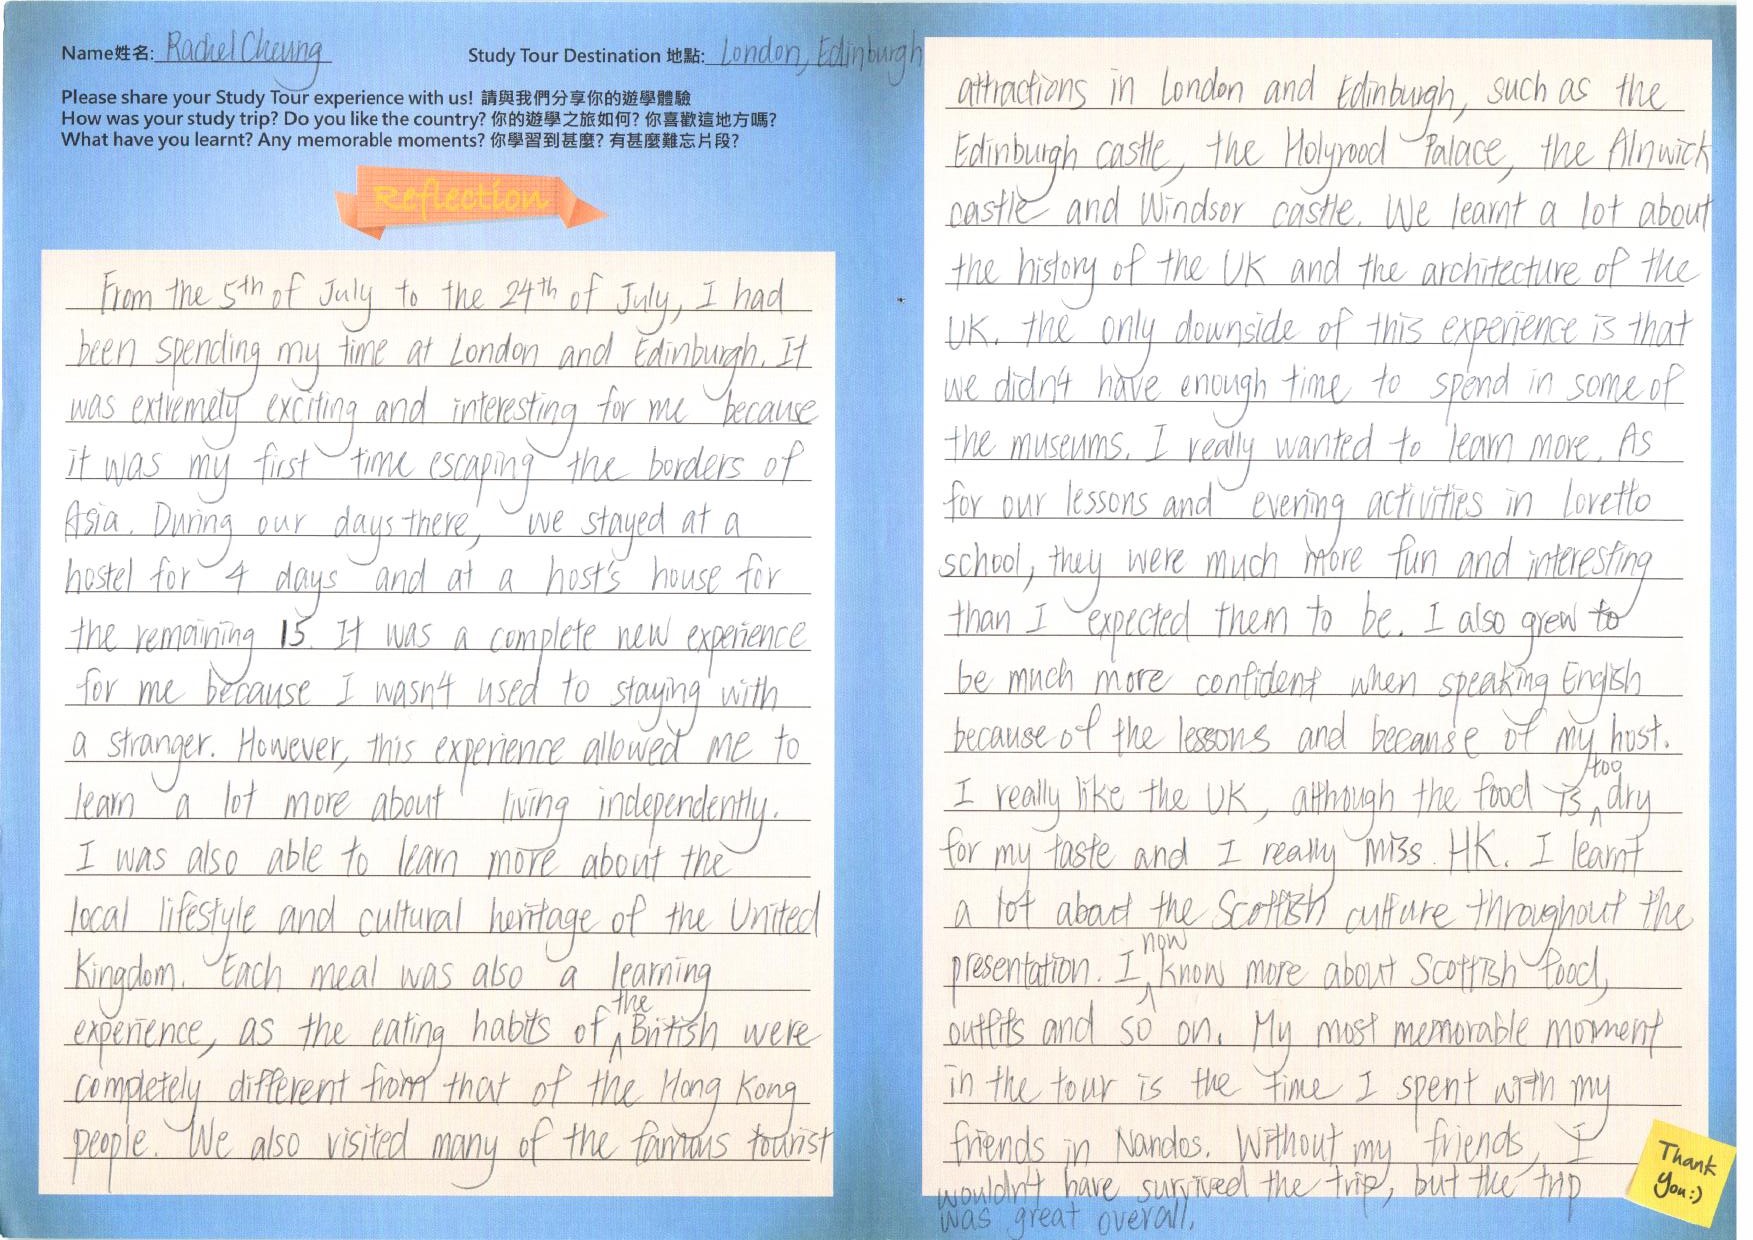 Name姓名: Rachel Cheung
Study Tour Destination 地點: London, Edinburgh
Please share your Study Tour experience with us! 請與我們分享你的遊學體驗
How was your study trip? Do you like the country? 你的遊學之旅如何? 你喜歡這地方嗎?
What have you learnt? Any memorable moments? 你學習到甚麼? 有甚麼難忘片段?
Reflection
From the 5th of July to the 24th of July, I had
been spending my time at London and Edinburgh. It
was extremely exciting and interesting for me because
it was my first time escaping the borders of
Asia. During our days there, we stayed at a
hostel for 4 days and at a host's house for
the remaining 15. It was a complete new experience
for me because I wasn't used to staying with
a stranger. However, this experience allowed me to
learn a lot more about living independently.
I was also able to learn more about the
local lifestyle and cultural heritage of the United
Kingdom. Each meal was also a learning
experience, as the eating habits of the British were
completely different from that of the Hong Kong
people. We also visited many of the famous tourist
attractions in London and Edinburgh, such as the
Edinburgh castle, the Holyrood Palace, the Alnwick
castle and Windsor castle. We learnt a lot about
the history of the UK and the architecture of the
UK. the only downside of this experience is that
we didn't have enough time to spend in some of
the museums. I really wanted to learn more. As
for our lessons and evening activities in Loretto
school, they were much more fun and interesting
than I expected them to be. I also grew to
be much more confident when speaking English
because of the lessons and because of my host.
I really like the UK, although the food is too dry
for my taste and I really miss HK. I learnt
a lot about the Scottish culture throughout the
presentation. I now know more about Scottish food,
outfits and so on. My most memorable moment
in the tour is the time I spent with my
friends in Nandos. Without my friends, I
wouldn't have survived the trip, but the trip
was great overall.
Thank
you:)